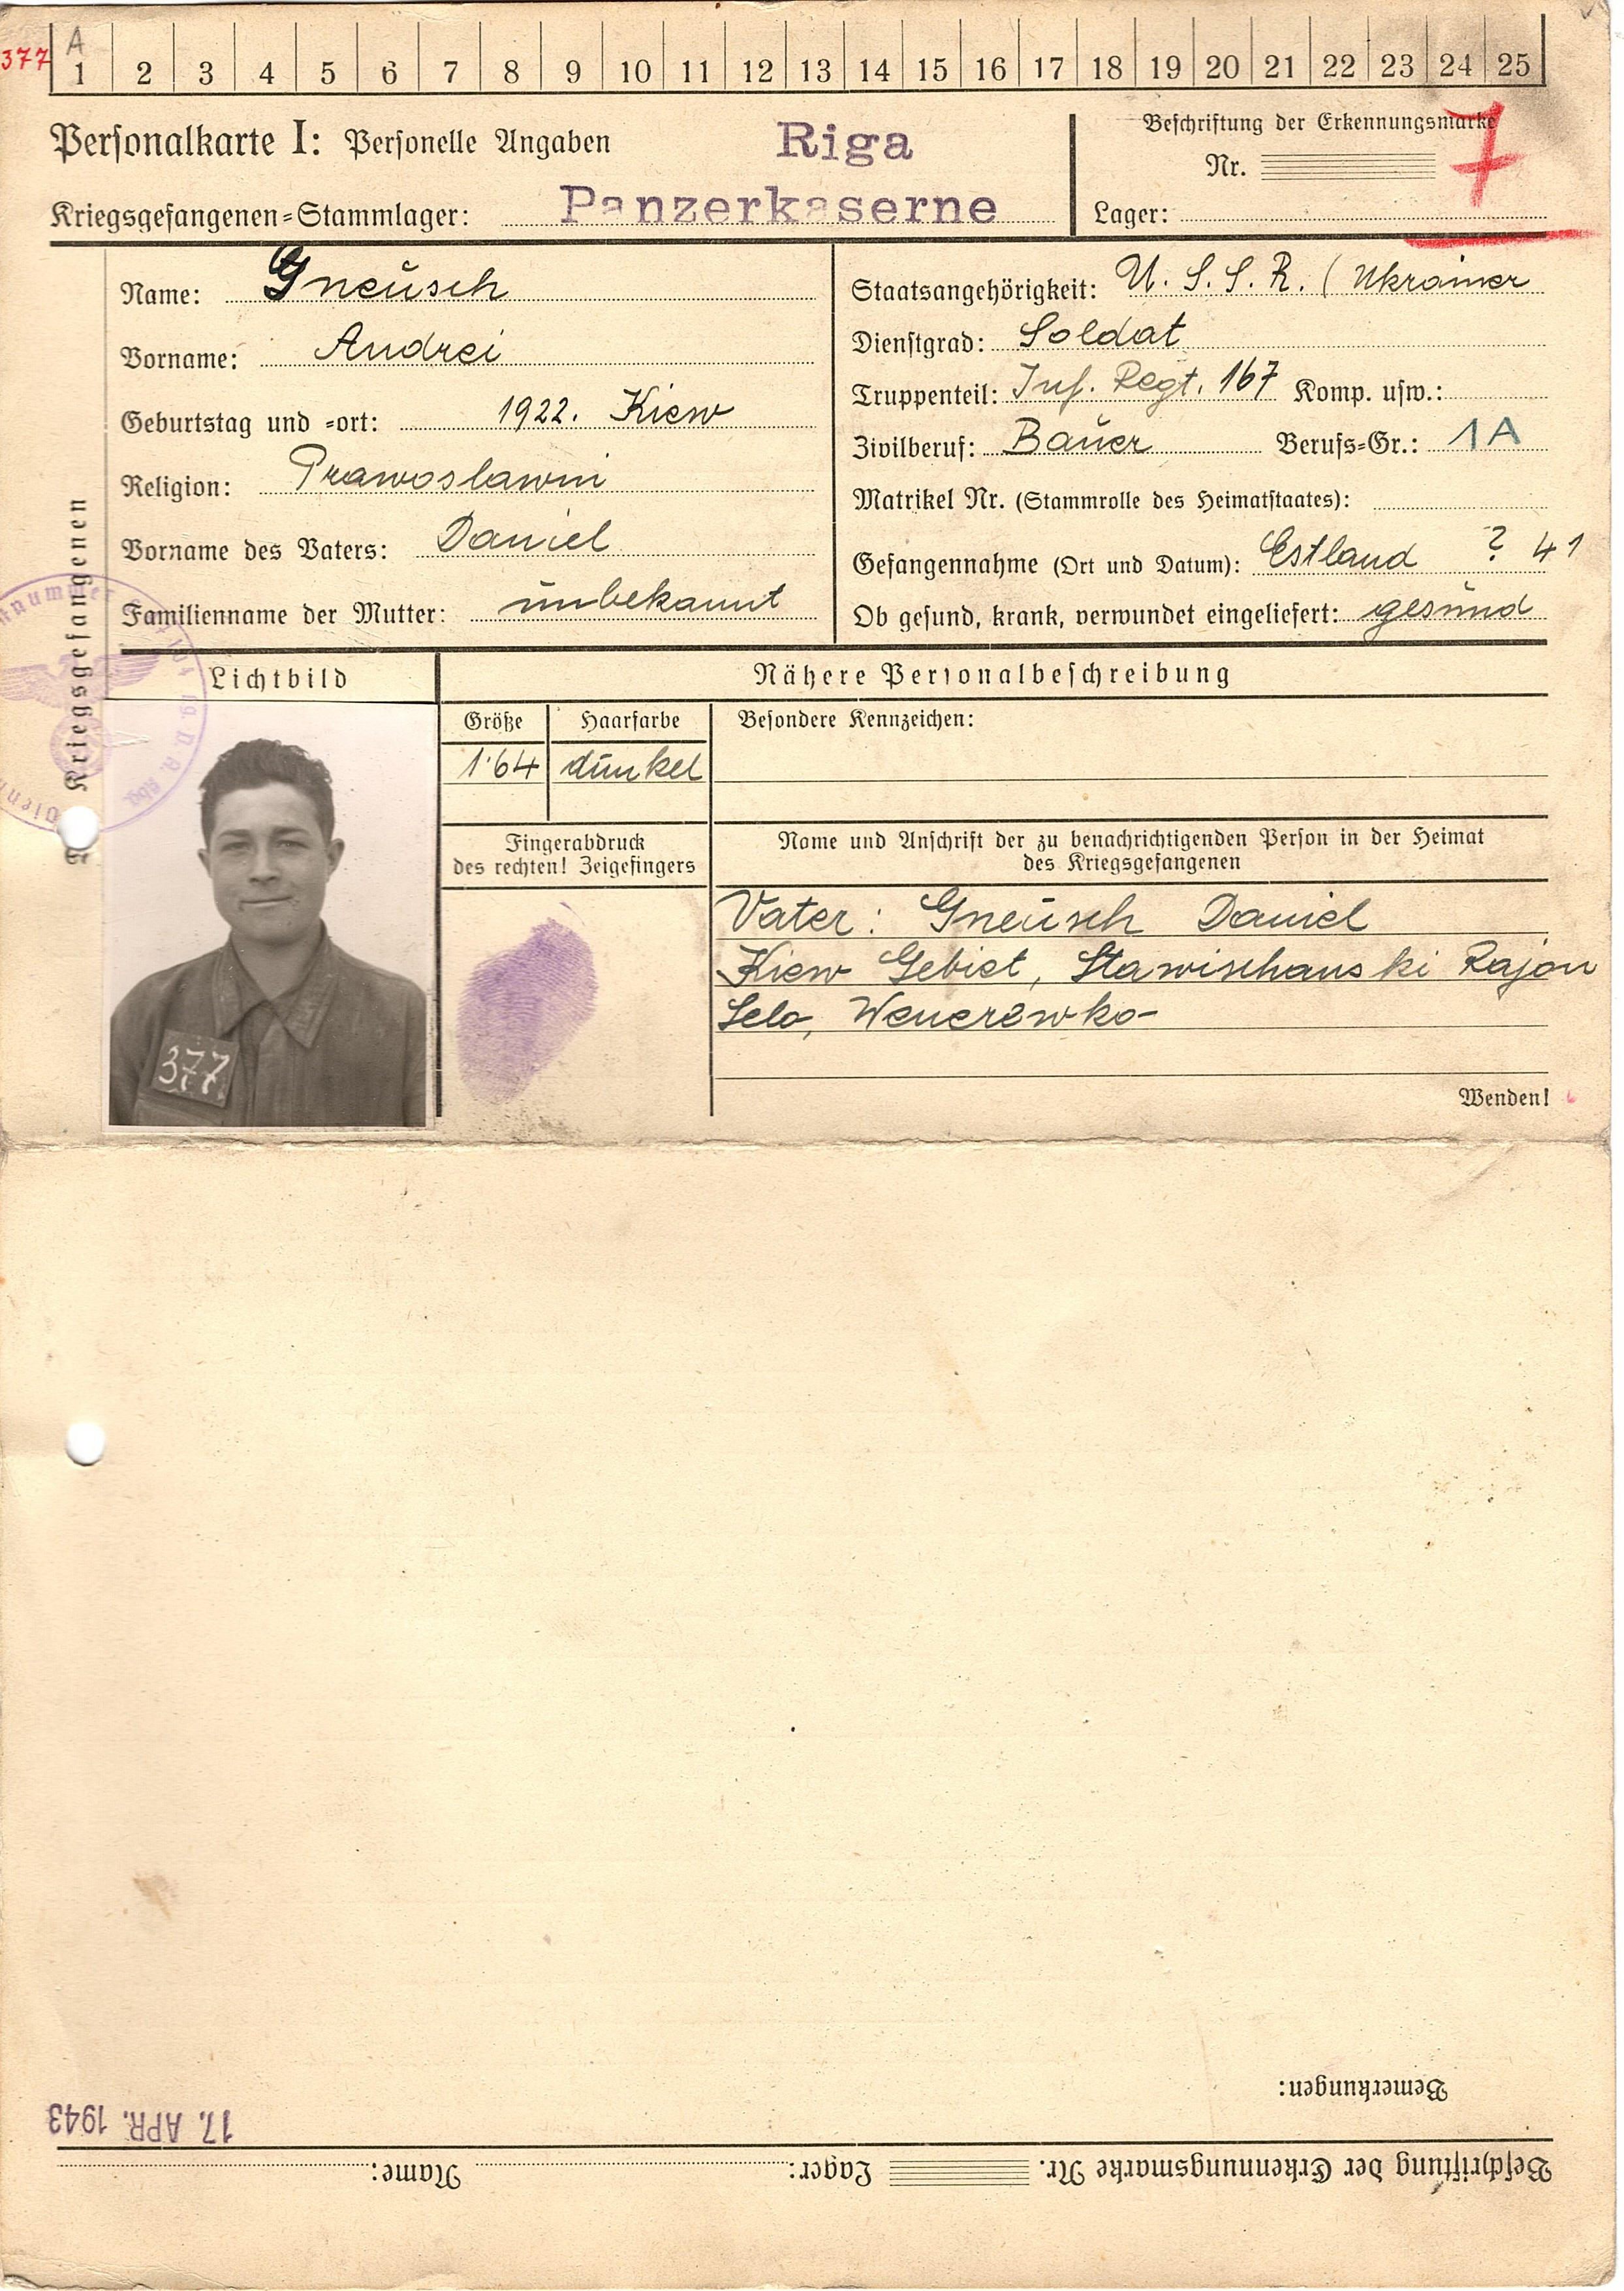 377 A
1 2 3 4 5 6 7 8 9 10 11 12 13 14 15 16 17 18 19 20 21 22 23 24 25
Personalkarte I: Personelle Angaben
Riga
Kriegsgefangenen-Stammlager: Panzerkaserne
Beschriftung der Erkennungsmarke
Nr.
7
Lager:
Name: Gneusch
Vorname: Andrei
Geburtstag und -ort: 1922. Kiew
Religion: Prawoslawni
Vorname des Vaters: Daniel
Familienname der Mutter: unbekannt
Staatsangehörigkeit: U.S.S.R. (Ukrainer
Dienstgrad: Soldat
Truppenteil: Inf. Regt. 167 Komp. usw.:
Zivilberuf: Bauer Berufs-Gr.: 1A
Matrikel Nr. (Stammrolle des Heimatstaates):
Gefangennahme (Ort und Datum): Estland ? 41
Ob gesund, krank, verwundet eingeliefert: gesund
Kriegsgefangenen
Lichtbild
377
Nähere Personalbeschreibung
Größe Haarfarbe Besondere Kennzeichen:
1.64 dunkel
Fingerabdruck
des rechten! Zeigefingers
Name und Anschrift der zu benachrichtigenden Person in der Heimat
des Kriegsgefangenen
Vater: Gneusch Daniel
Kiew Gebiet, Stawischanski Rajon
Selo,
Wenden!
Bemerkungen:
17. APR. 1943
Beschriftung der Erkennungsmarke Nr. Lager: Name: